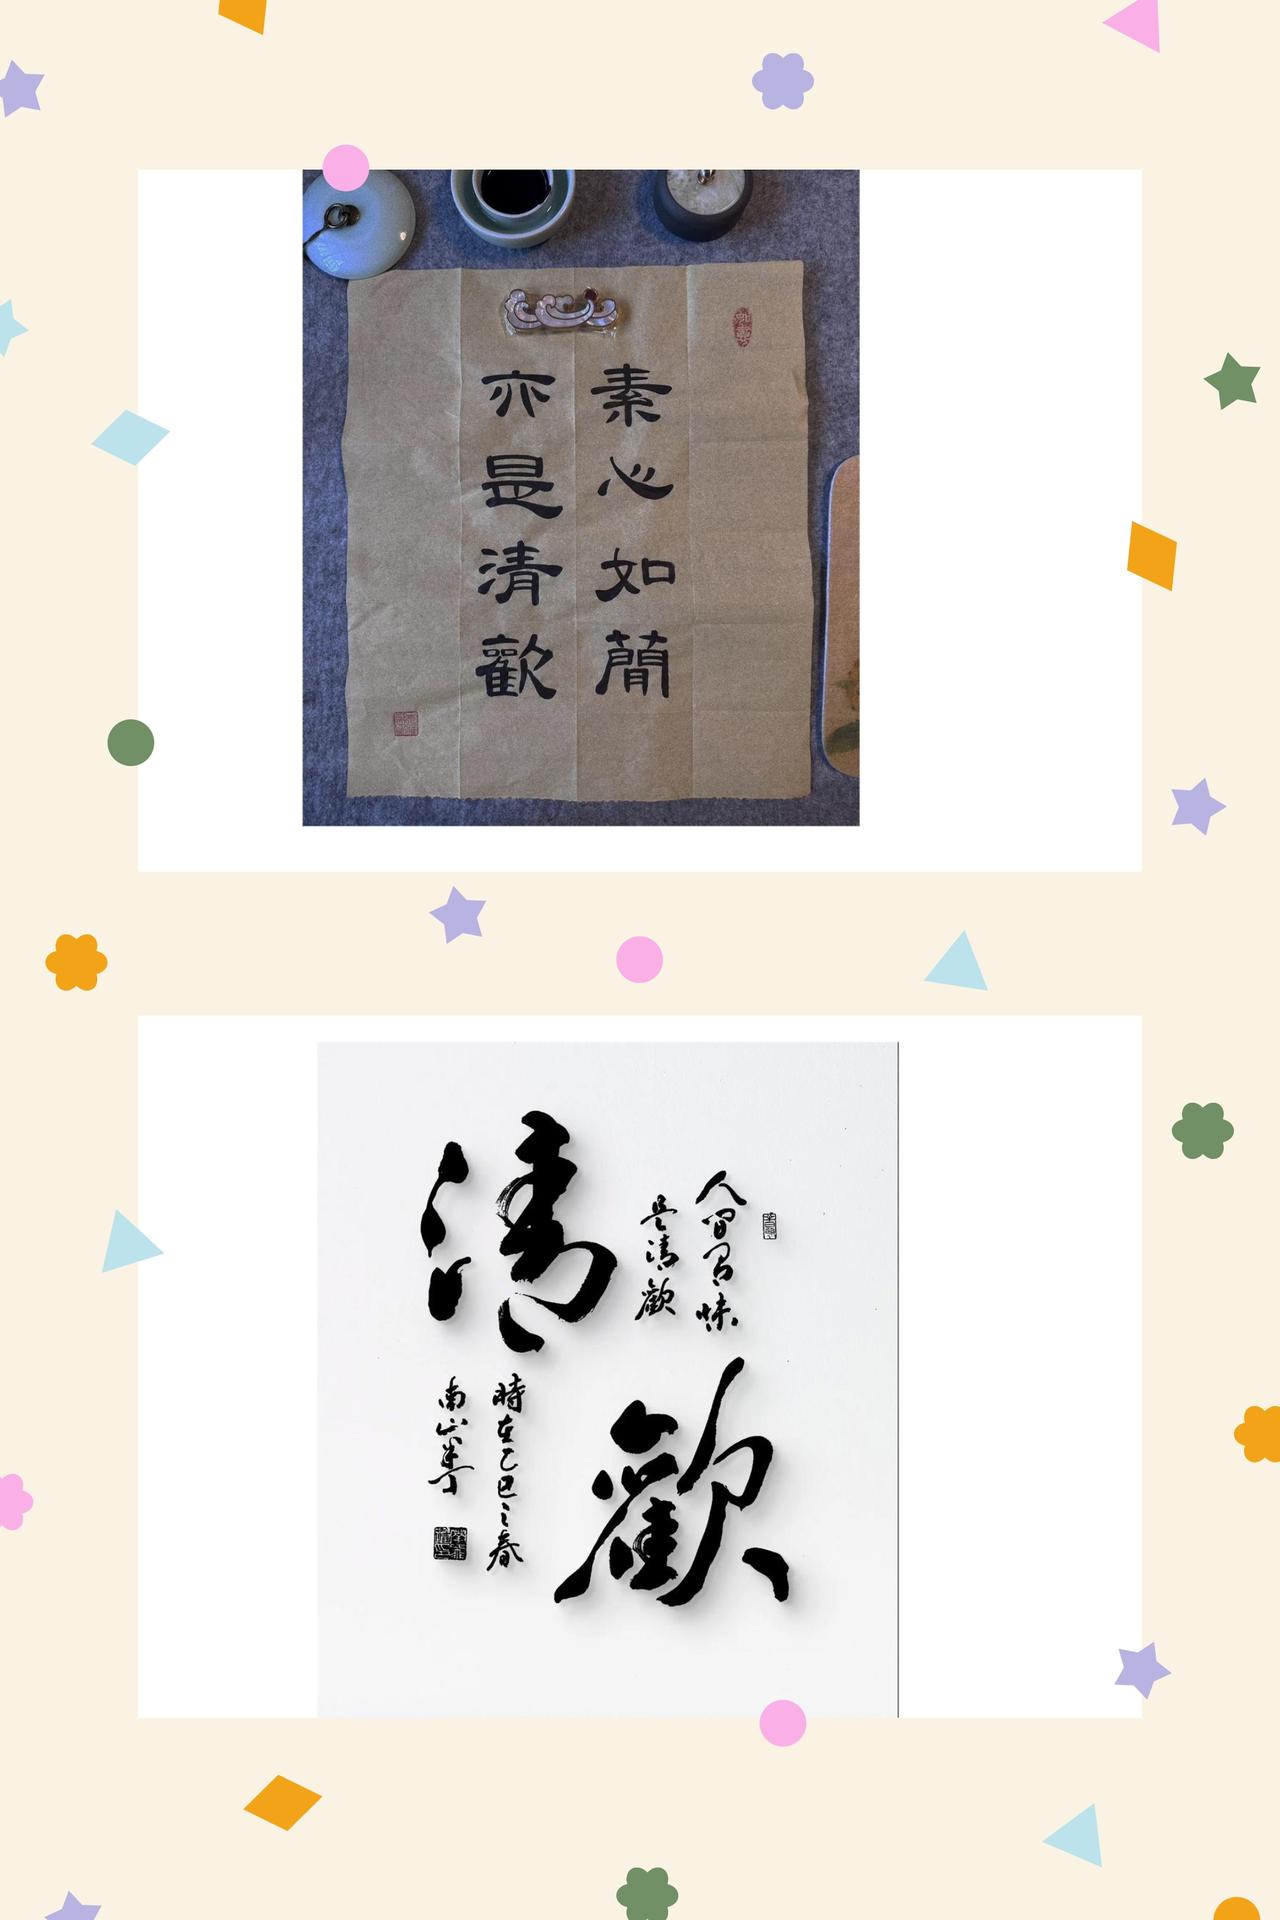 素心如簡
亦是清歡
清歡
人間有味
是清歡
時在乙巳之春
南山筆丁